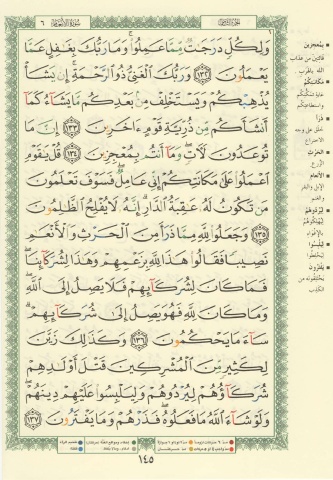 سورة الأنعام ٦
الجزء الثامن
وَلِكُلٍّ دَرَجَٰتٌ مِّمَّا عَمِلُوا۟ وَمَا رَبُّكَ بِغَٰفِلٍ عَمَّا
يَعْمَلُونَ ١٣٢ وَرَبُّكَ ٱلْغَنِىُّ ذُو ٱلرَّحْمَةِ إِن يَشَأْ
يُذْهِبْكُمْ وَيَسْتَخْلِفْ مِنۢ بَعْدِكُم مَّا يَشَآءُ كَمَآ
أَنشَأَكُم مِّن ذُرِّيَّةِ قَوْمٍ ءَاخَرِينَ ١٣٣ إِنَّ مَا
تُوعَدُونَ لَءَاتٍ وَمَآ أَنتُم بِمُعْجِزِينَ ١٣٤ قُلْ يَٰقَوْمِ
ٱعْمَلُوا۟ عَلَىٰ مَكَانَتِكُمْ إِنِّى عَامِلٌ فَسَوْفَ تَعْلَمُونَ
مَن تَكُونُ لَهُۥ عَٰقِبَةُ ٱلدَّارِ إِنَّهُۥ لَا يُفْلِحُ ٱلظَّٰلِمُونَ
١٣٥ وَجَعَلُوا۟ لِلَّهِ مِمَّا ذَرَأَ مِنَ ٱلْحَرْثِ وَٱلْأَنْعَٰمِ
نَصِيبًا فَقَالُوا۟ هَٰذَا لِلَّهِ بِزَعْمِهِمْ وَهَٰذَا لِشُرَكَآئِنَا
فَمَا كَانَ لِشُرَكَآئِهِمْ فَلَا يَصِلُ إِلَى ٱللَّهِ
وَمَا كَانَ لِلَّهِ فَهُوَ يَصِلُ إِلَىٰ شُرَكَآئِهِمْ
سَآءَ مَا يَحْكُمُونَ ١٣٦ وَكَذَٰلِكَ زَيَّنَ
لِكَثِيرٍ مِّنَ ٱلْمُشْرِكِينَ قَتْلَ أَوْلَٰدِهِمْ
شُرَكَآؤُهُمْ لِيُرْدُوهُمْ وَلِيَلْبِسُوا۟ عَلَيْهِمْ دِينَهُمْ
وَلَوْ شَآءَ ٱللَّهُ مَا فَعَلُوهُ فَذَرْهُمْ وَمَا يَفْتَرُونَ ١٣٧
بمعجزين
فائتين من عذاب
الله بالهرب
مكانتكم
ذرأ
الحرث
الزرع
الأنعام
ليردوهم
ليلبسوا
يفترون
الكذب
١٤٥